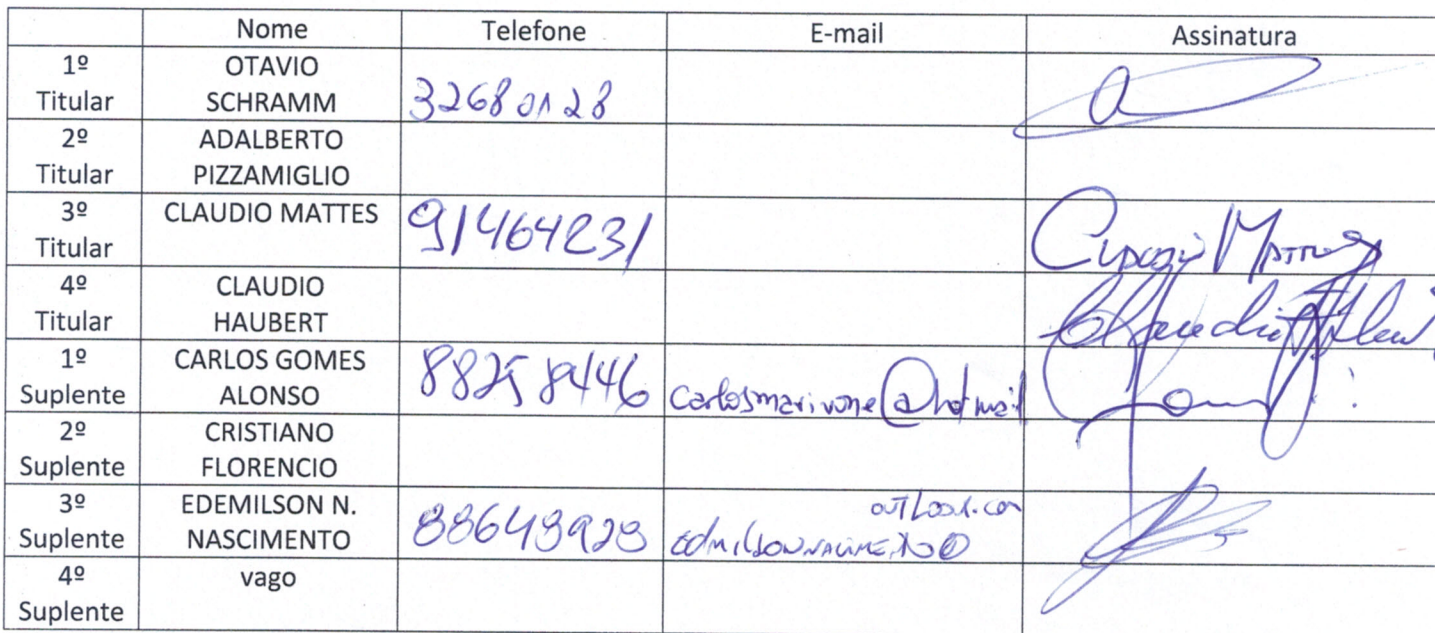 Nome Telefone E-mail Assinatura
1º Titular OTAVIO SCHRAMM 32680128
2º Titular ADALBERTO PIZZAMIGLIO
3º Titular CLAUDIO MATTES 91464231 Claudio Mattes
4º Titular CLAUDIO HAUBERT
1º Suplente CARLOS GOMES ALONSO 88258446 carlosmarivone@hotmail
2º Suplente CRISTIANO FLORENCIO
3º Suplente EDEMILSON N. NASCIMENTO outlook.com
4º Suplente vago